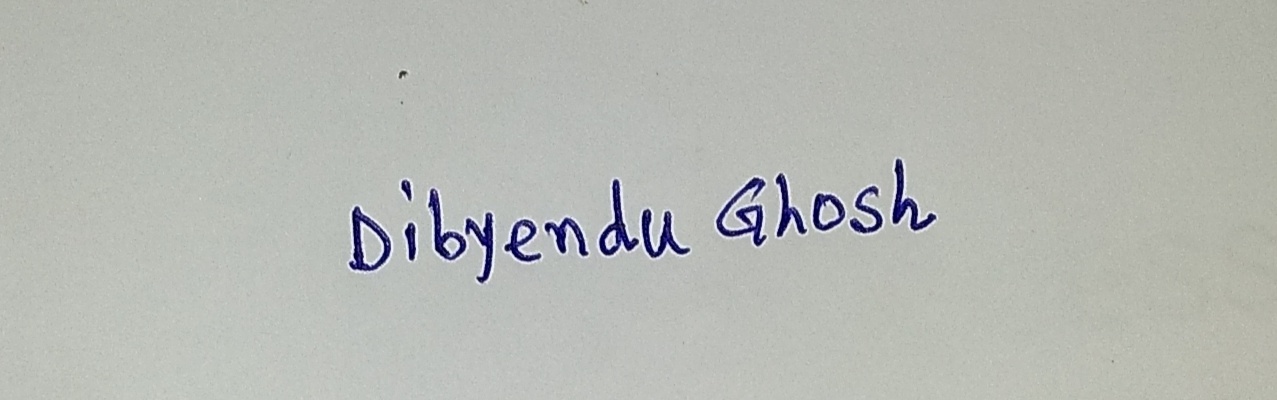 Dibyendu Ghosh